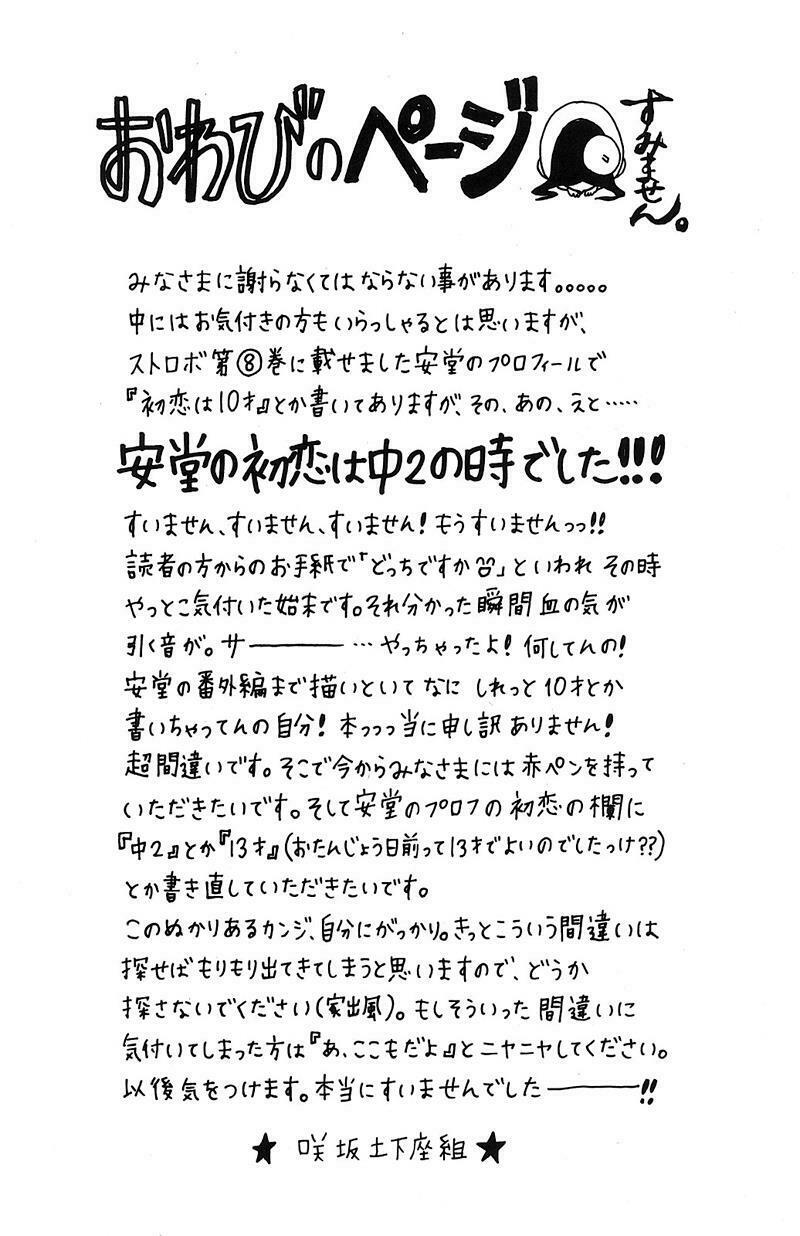 おわびのページ
すみません。
みなさまに謝らなくてはならない事があります。。。。。
中にはお気付きの方もいらっしゃるとは思いますが、
ストロボ第⑧巻に載せました安堂のプロフィールで
『初恋は10才』とか書いてありますが、その、あの、えと……
安堂の初恋は中2の時でした!!!
すいません、すいません、すいません！もうすいませんっっ!!
読者の方からのお手紙で「どっちですか」といわれ その時
やっとこ気付いた始末です。それ分かった瞬間血の気が
引く音が。サ―――― …やっちゃったよ！何してんの！
安堂の番外編まで描いといて なに しれっと 10才とか
書いちゃってんの自分！本っっっ当に申し訳ありません！
超間違いです。そこで今からみなさまには赤ペンを持って
いただきたいです。そして安堂のプロフの初恋の欄に
『中2』とか『13才』（おたんじょう日前って13才でよいのでしたっけ??）
とか書き直していただきたいです。
このぬかりあるカンジ、自分にがっかり。きっとこういう間違いは
探せばもりもり出てきてしまうと思いますので、どうか
探さないでください（家出風）。もしそういった間違いに
気付いてしまった方は『あ、ここもだよ』とニヤニヤしてください。
以後気をつけます。本当にすいませんでした――――!!
★ 咲坂土下座組 ★